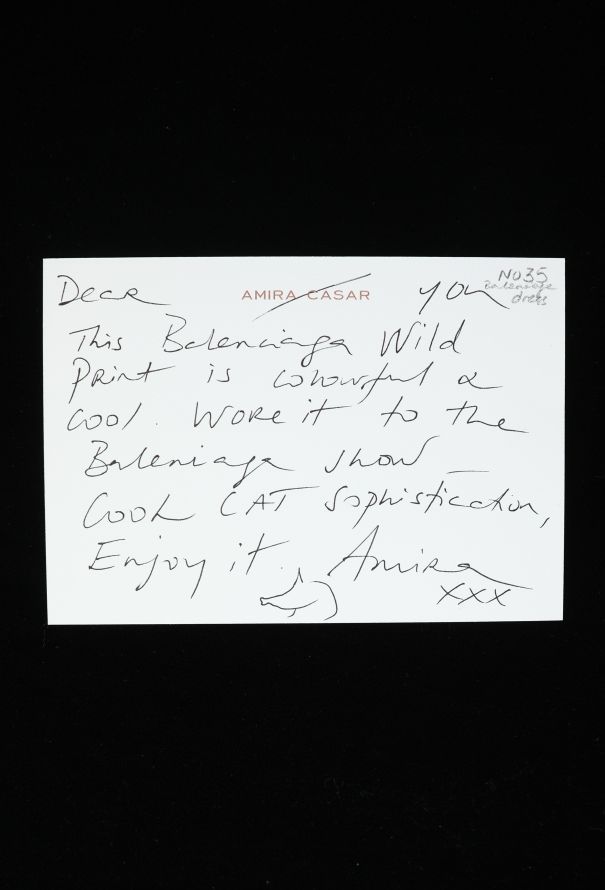 Dear AMIRA CASAR you
No 35
Balenciaga
dress
This Balenciaga Wild
Print is colourful &
cool. Wore it to the
Balenciaga show –
Cool CAT Sophistication,
Enjoy it. Amira
xxx